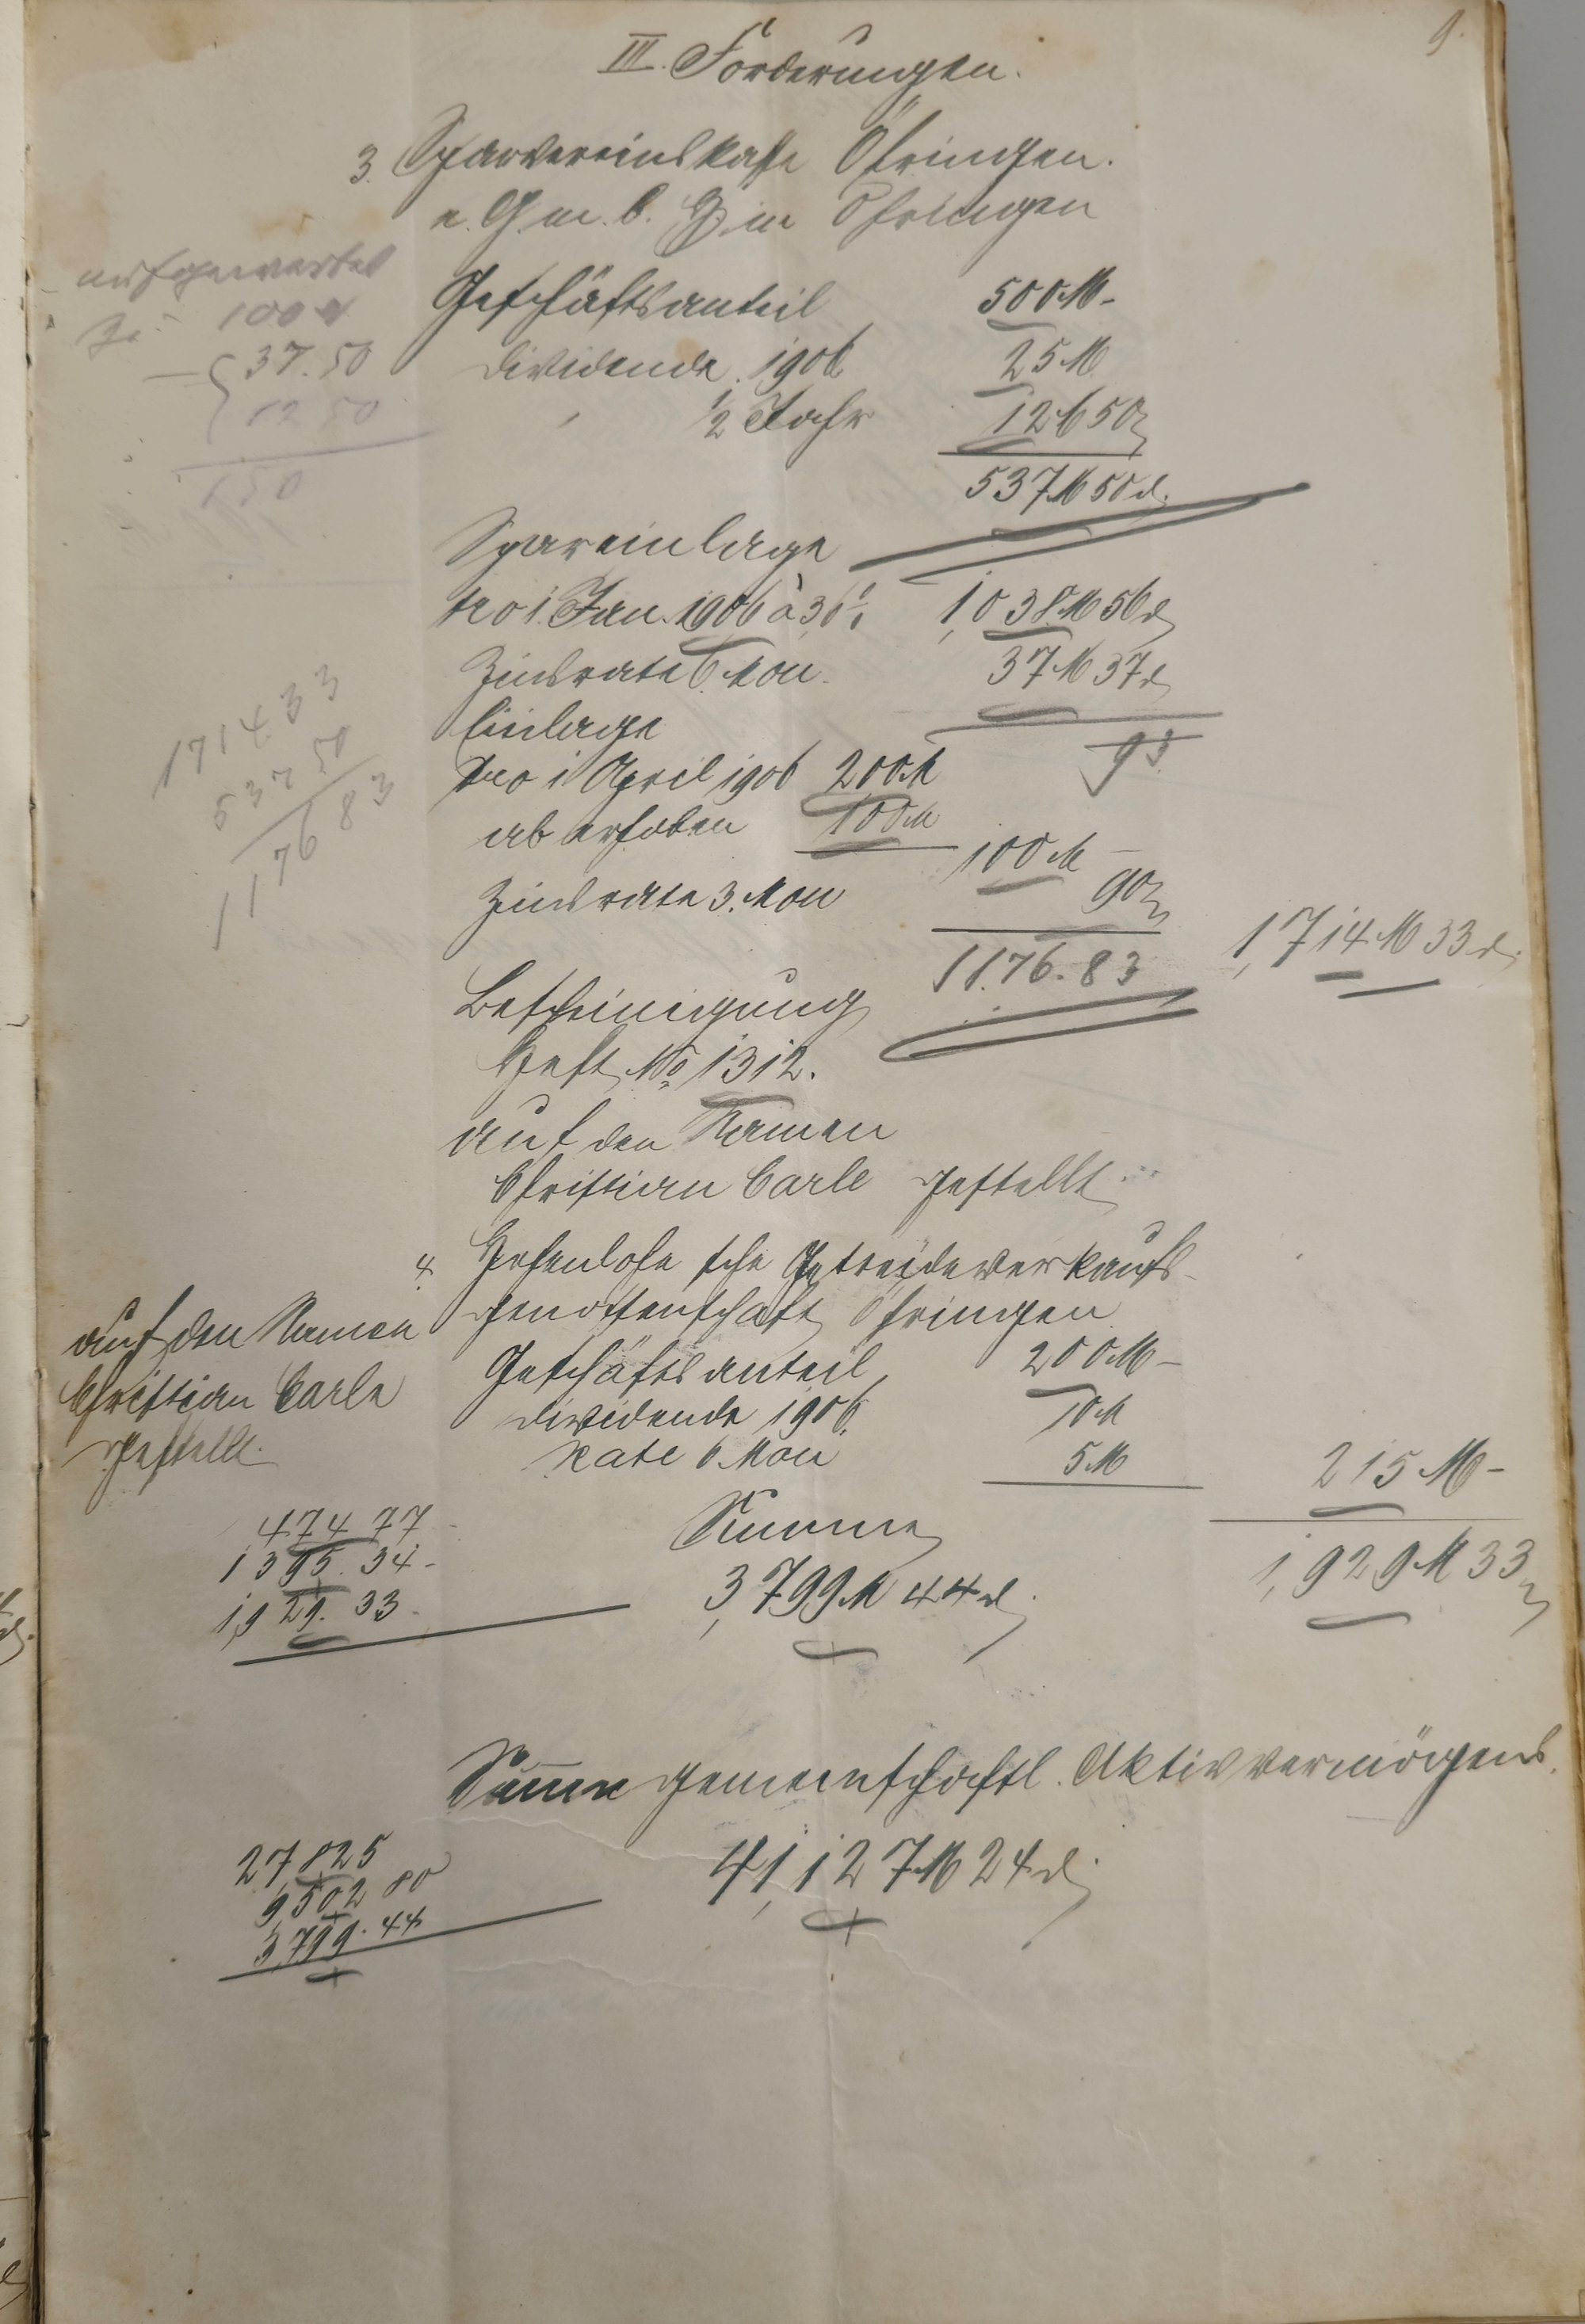 9.
III. Forderungen.
3. Sparvereinskasse Öhringen.
e. G. m. b. H. in Öhringen
aufgewertet
zu 100 M
Geschäftsanteil 500 M -
37.50
Dividende 1906 25 M
12 50
" 1/2 Jahr 12 M 50 d
150
537 M 50 d.
Spareinlage
pro 1. Jan. 1906 à 3,6 % 1,038 M 56 d
Zinsrate 6. Mon. 37 M 37 d
Einlage
93
pro 1 April 1906 200 M
ab erhoben 100 M
100 M -
Zinsrate 3. Mon 90 d
1714 33
537 50
1176 83
1176.83
1,714 M 33 d.
Bescheinigung
Heft No 1312.
auf den Namen
Christian Carle gestellt
4. Hohenlohe'sche Getreideverkaufs-
genossenschaft Öhringen
auf den Namen
Christian Carle
gestellt.
Geschäftsanteil 200 M -
Dividende 1906. 10 M
Rate 6 Mon 5 M
215 M -
Summe
1,929 M 33 d
474 77 -
1395. 34 -
1,929. 33 -
3,799 M 44 d.
Summe gemeinschaftl. Aktivvermögens.
27,825
9,502 80
3,799. 44
41,127 M 24 d.